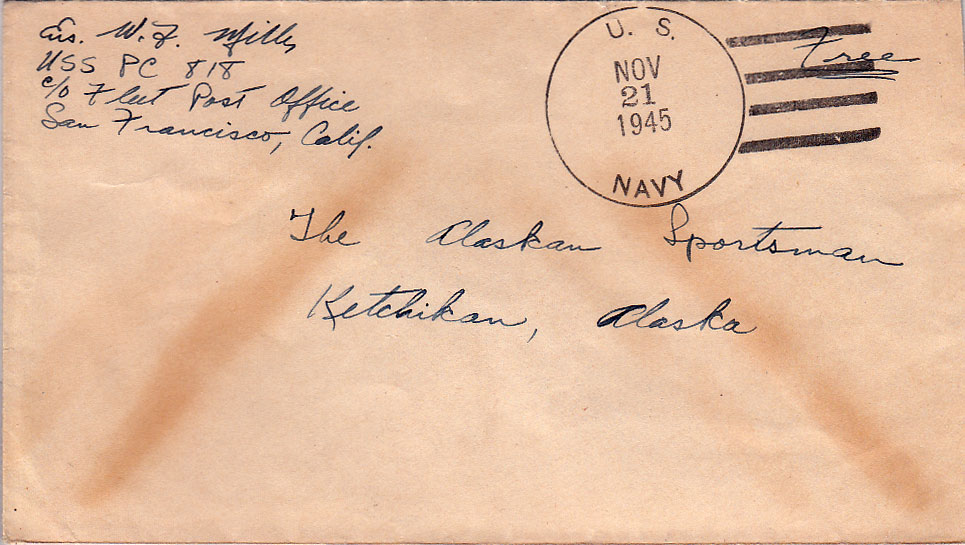 Ens. W. F. Mills
USS PC 818
c/o Fleet Post Office
San Francisco, Calif.
U. S.
NOV
21
1945
NAVY
Free
The Alaskan Sportsman
Ketchikan, Alaska